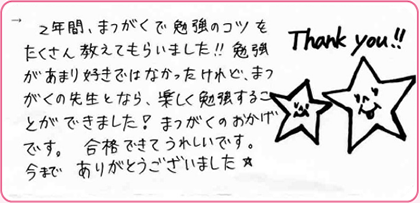 →
2年間、まつがくで勉強のコツを
たくさん教えてもらいました!! 勉強
があまり好きではなかったけれど、まつ
がくの先生となら、楽しく勉強するこ
とができました! まつがくのおかげ
です。 合格できてうれしいです。
今まで ありがとうございました☆
Thank you!!